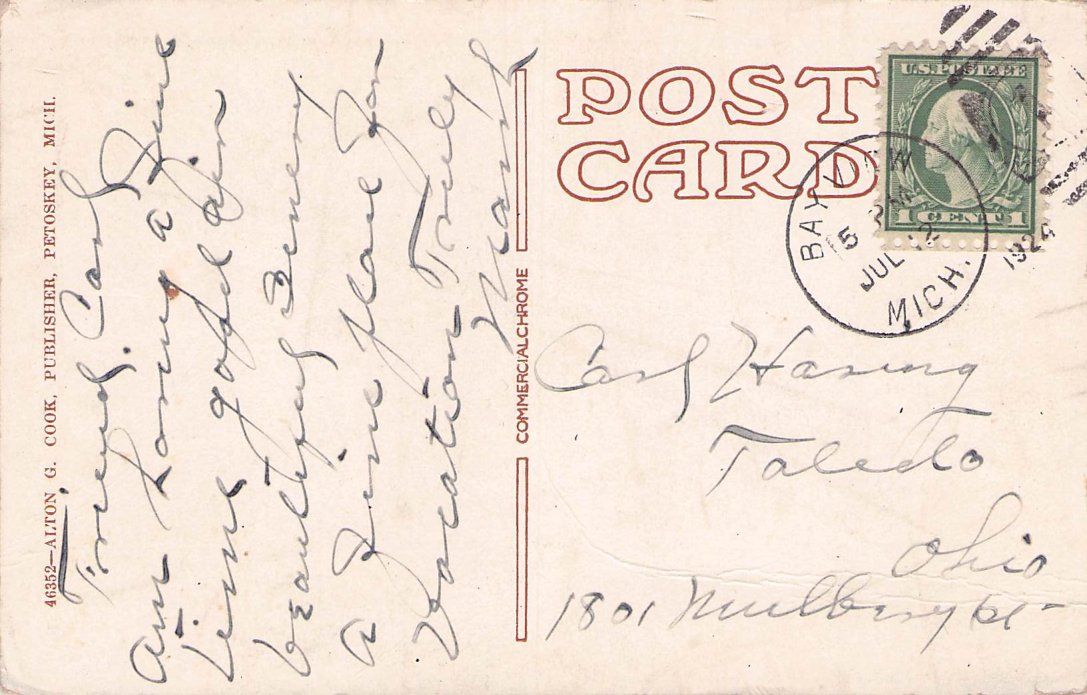 46352—ALTON G. COOK, PUBLISHER, PETOSKEY, MICH.
Friend Carl
am having a fine
time good fishin
beautiful Scenery
a fine place for
vacation Truly
Frank
COMMERCIALCHROME
POST
CARD
U.S. POSTAGE
1 CENT 1
BAY VIEW
5 PM
JUL 12
1924
MICH.
Carl Hasing
Toledo
Ohio
1801 Mulberry st